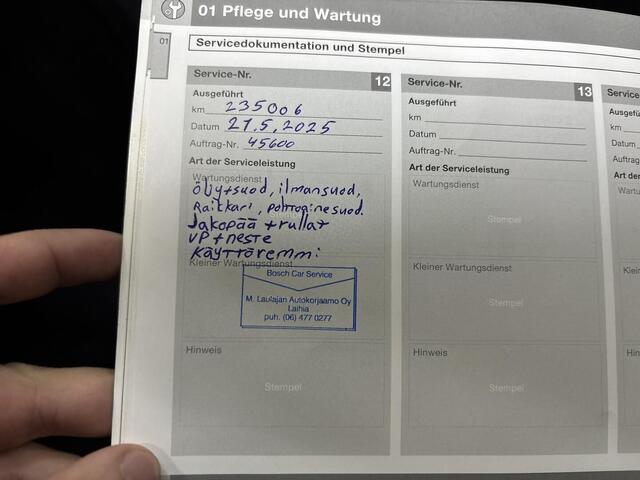 01 Pflege und Wartung
01
Servicedokumentation und Stempel
Service-Nr. 12
Ausgeführt
km 235006
Datum 27.5.2025
Auftrag-Nr. 45600
Art der Serviceleistung
Wartungsdienst
öljyt+suod, ilmansuod,
Raitkari, polttoainesuod.
Jakopää + rullat
VP + neste
Käyttöremmi
Kleiner Wartungsdienst
Bosch Car Service
M. Laulajan Autokorjaamo Oy
Laihia
puh. (06) 477 0277
Hinweis
Stempel
Service-Nr. 13
Ausgeführt
km
Datum
Auftrag-Nr.
Art der Serviceleistung
Wartungsdienst
Stempel
Kleiner Wartungsdienst
Stempel
Hinweis
Stempel
Service
Ausgefü
km
Datum
Auftrag-N
Art der
Wartung
Kleiner
Hinweis